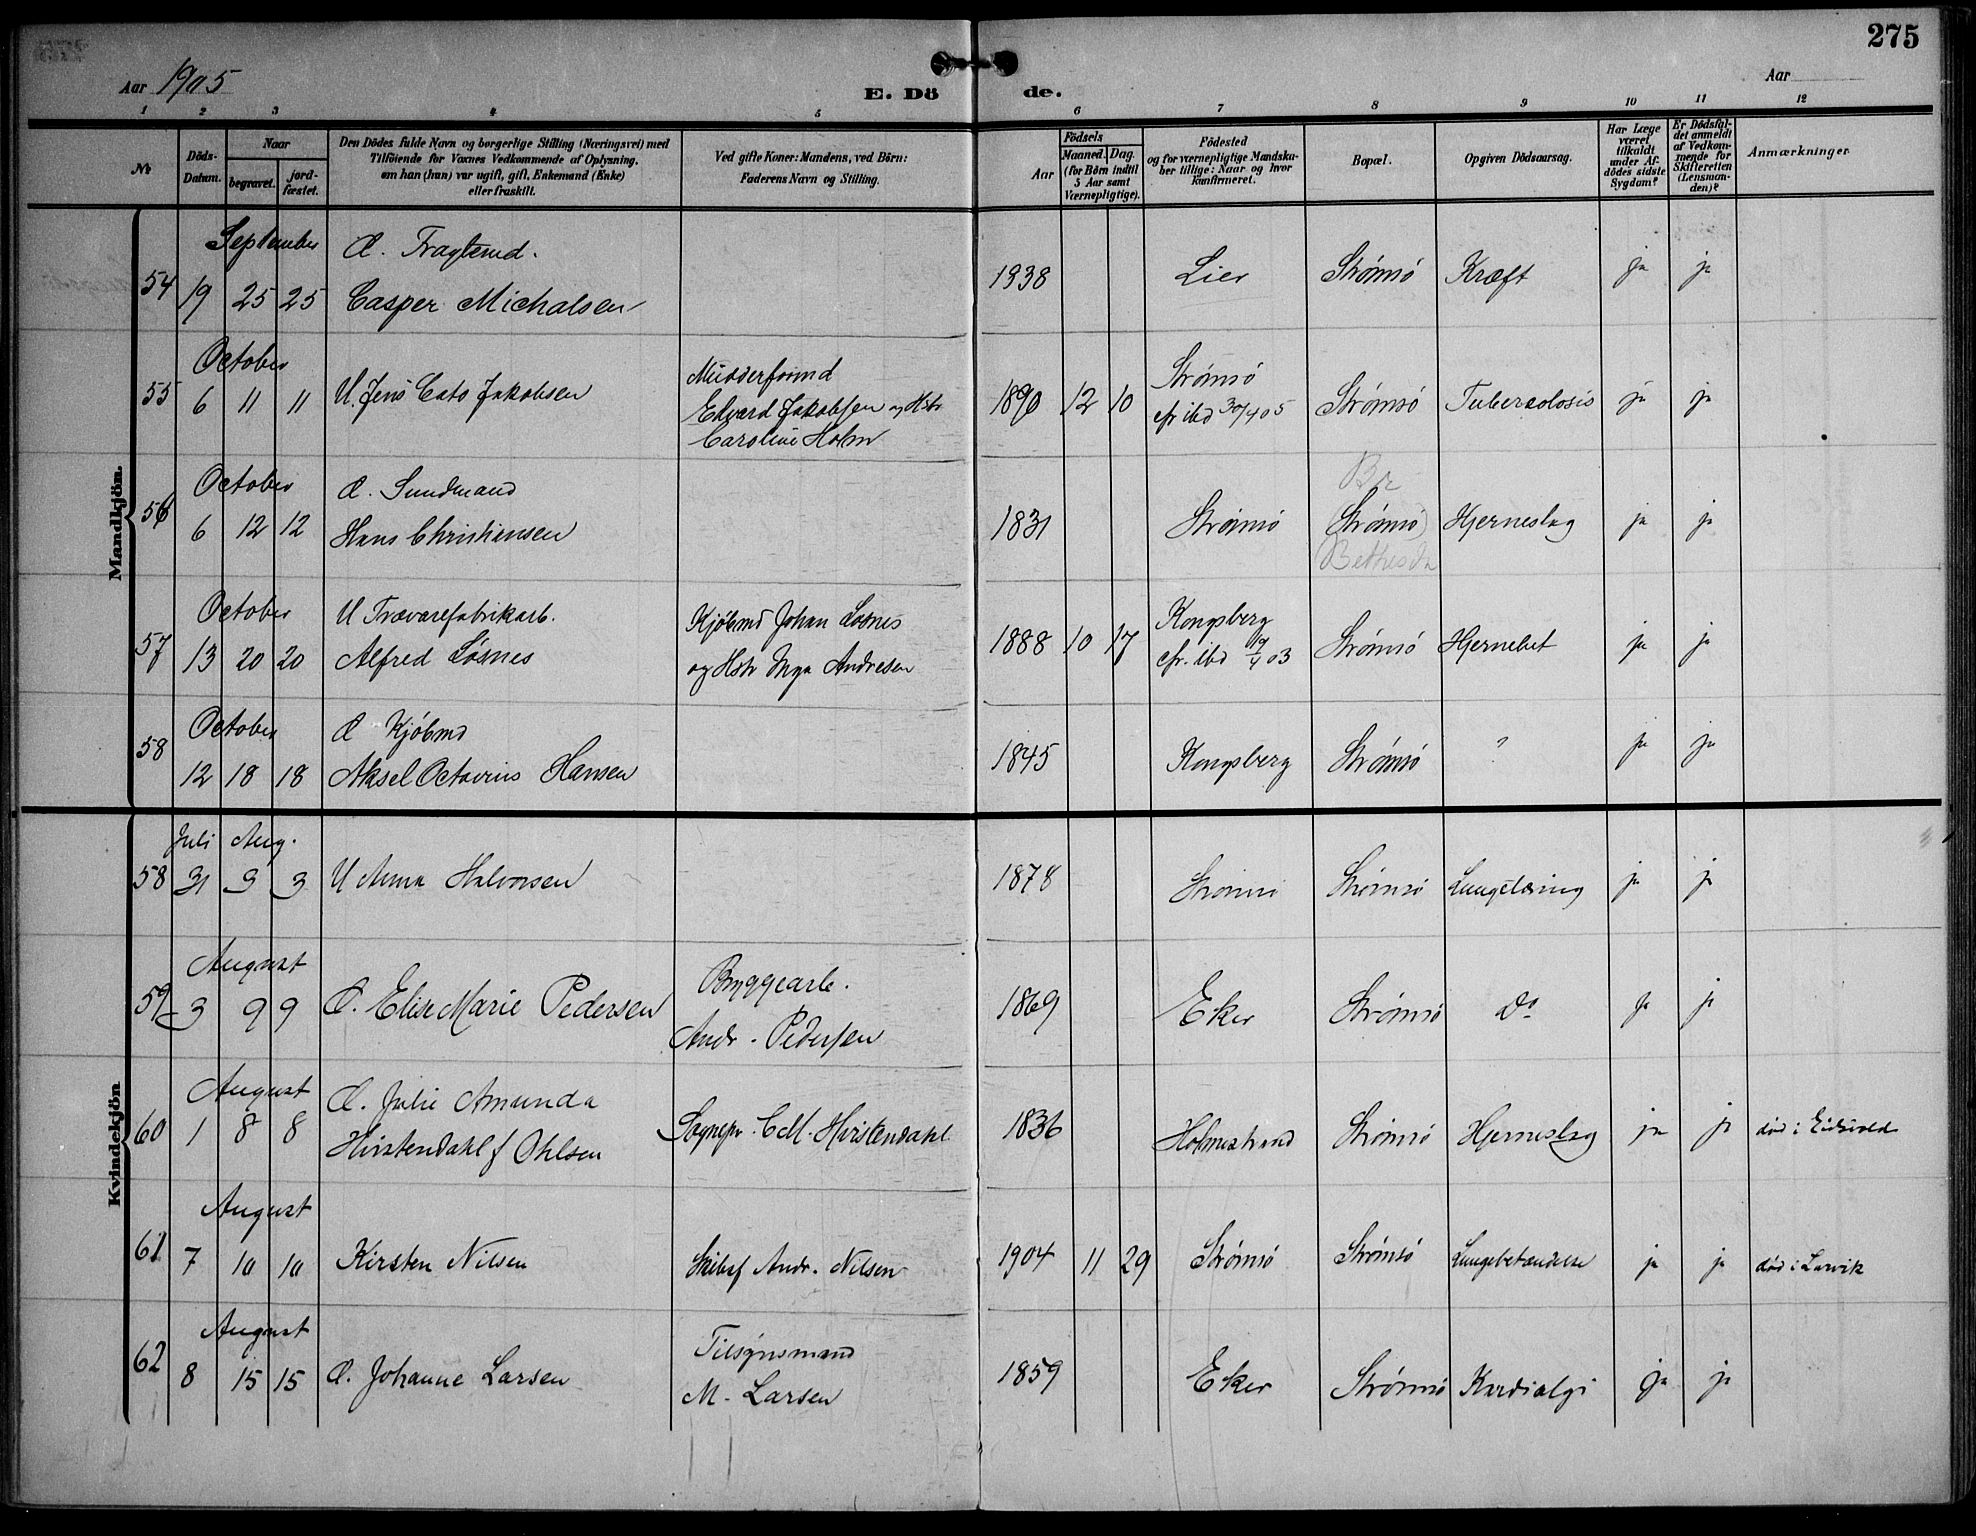 275
Aar 1905
E. Dö de.
Aar
1 2 3 4 5 6 7 8 9 10 11 12
No
Döds-Datum.
Naar
begravet.
jord-fæstet.
Den Dödes fulde Navn og borgerlige Stilling (Næringsvei) med
Tilföiende for Voxnes Vedkommende af Oplysning,
om han (hun) var ugift, gift, Enkemand (Enke)
eller fraskilt.
Ved gifte Koner: Mandens, ved Börn:
Faderens Navn og Stilling.
Födsels
Aar
Maaned. Dag.
(for Börn indtil
5 Aar samt
Værnepligtige).
Födested
og for værnepligtige Mandska-
ber tillige: Naar og hvor
konfirmeret.
Bopæl.
Opgiven Dödsaarsag.
Har Læge
været
tilkaldt
under Af-
dödes sidste
Sygdom?
Er Dödsfal-
det anmeldt
af Vedkom-
mende for
Skifteretten
(Lensman-
den)?
Anmærkninger.
Mandkjön.
September
54 19 25 25 Casper Michalsen 1938 Lier Strømsø Kræft ja ja
October
55 6 11 11 U. Jens Cato Jakobsen
Edvard Jakobsen og Hstr
Caroline Holm
1890 12 10
Strømsø
cfr ibd 30/4 05
Strømsø Tuberkolosis ja ja
October
56 6 12 12
Hans Christiansen
1831 Strømsø
Strømsø
Bethesda
Hjerneslag ja ja
October
57 13 20 20
U Trævarefabrikarb.
Alfred Løsnes
Kjøbmd Johan Løsnes
og Hstr Inga Andresen
1888 10 17
Kongsberg
cfr. ibd 19/4 03
Strømsø ja ja
October
58 12 18 18
Kjøbmd
Aksel Octavius Hansen
1845 Kongsberg Strømsø ? ja ja
Kvindekjön
Juli Aug.
58 31 3 3 U Anna Halvorsen 1878 Strømsø Strømsø Lungetæring ja ja
August
59 3 9 9 Elise Marie Pedersen
Bryggearb.
Andr. Pedersen
1869 Eker Strømsø Do ja ja
August
60 1 8 8
Julie Amunda
Hvistendahl f Ohlsen
Sognepr. C M. Hvistendahl
1836 Holmestrand Strømsø Hjerneslag ja ja død i Eidsvold
August
61 7 10 10 Kirsten Nilsen
Andr. Nilsen
1904 11 29 Strømsø Strømsø Lungebetændelse ja ja død i Larvik
August
62 8 15 15 Johanne Larsen
Tilsynsmand
M. Larsen
1859 Eker Strømsø Kardialgi ja ja